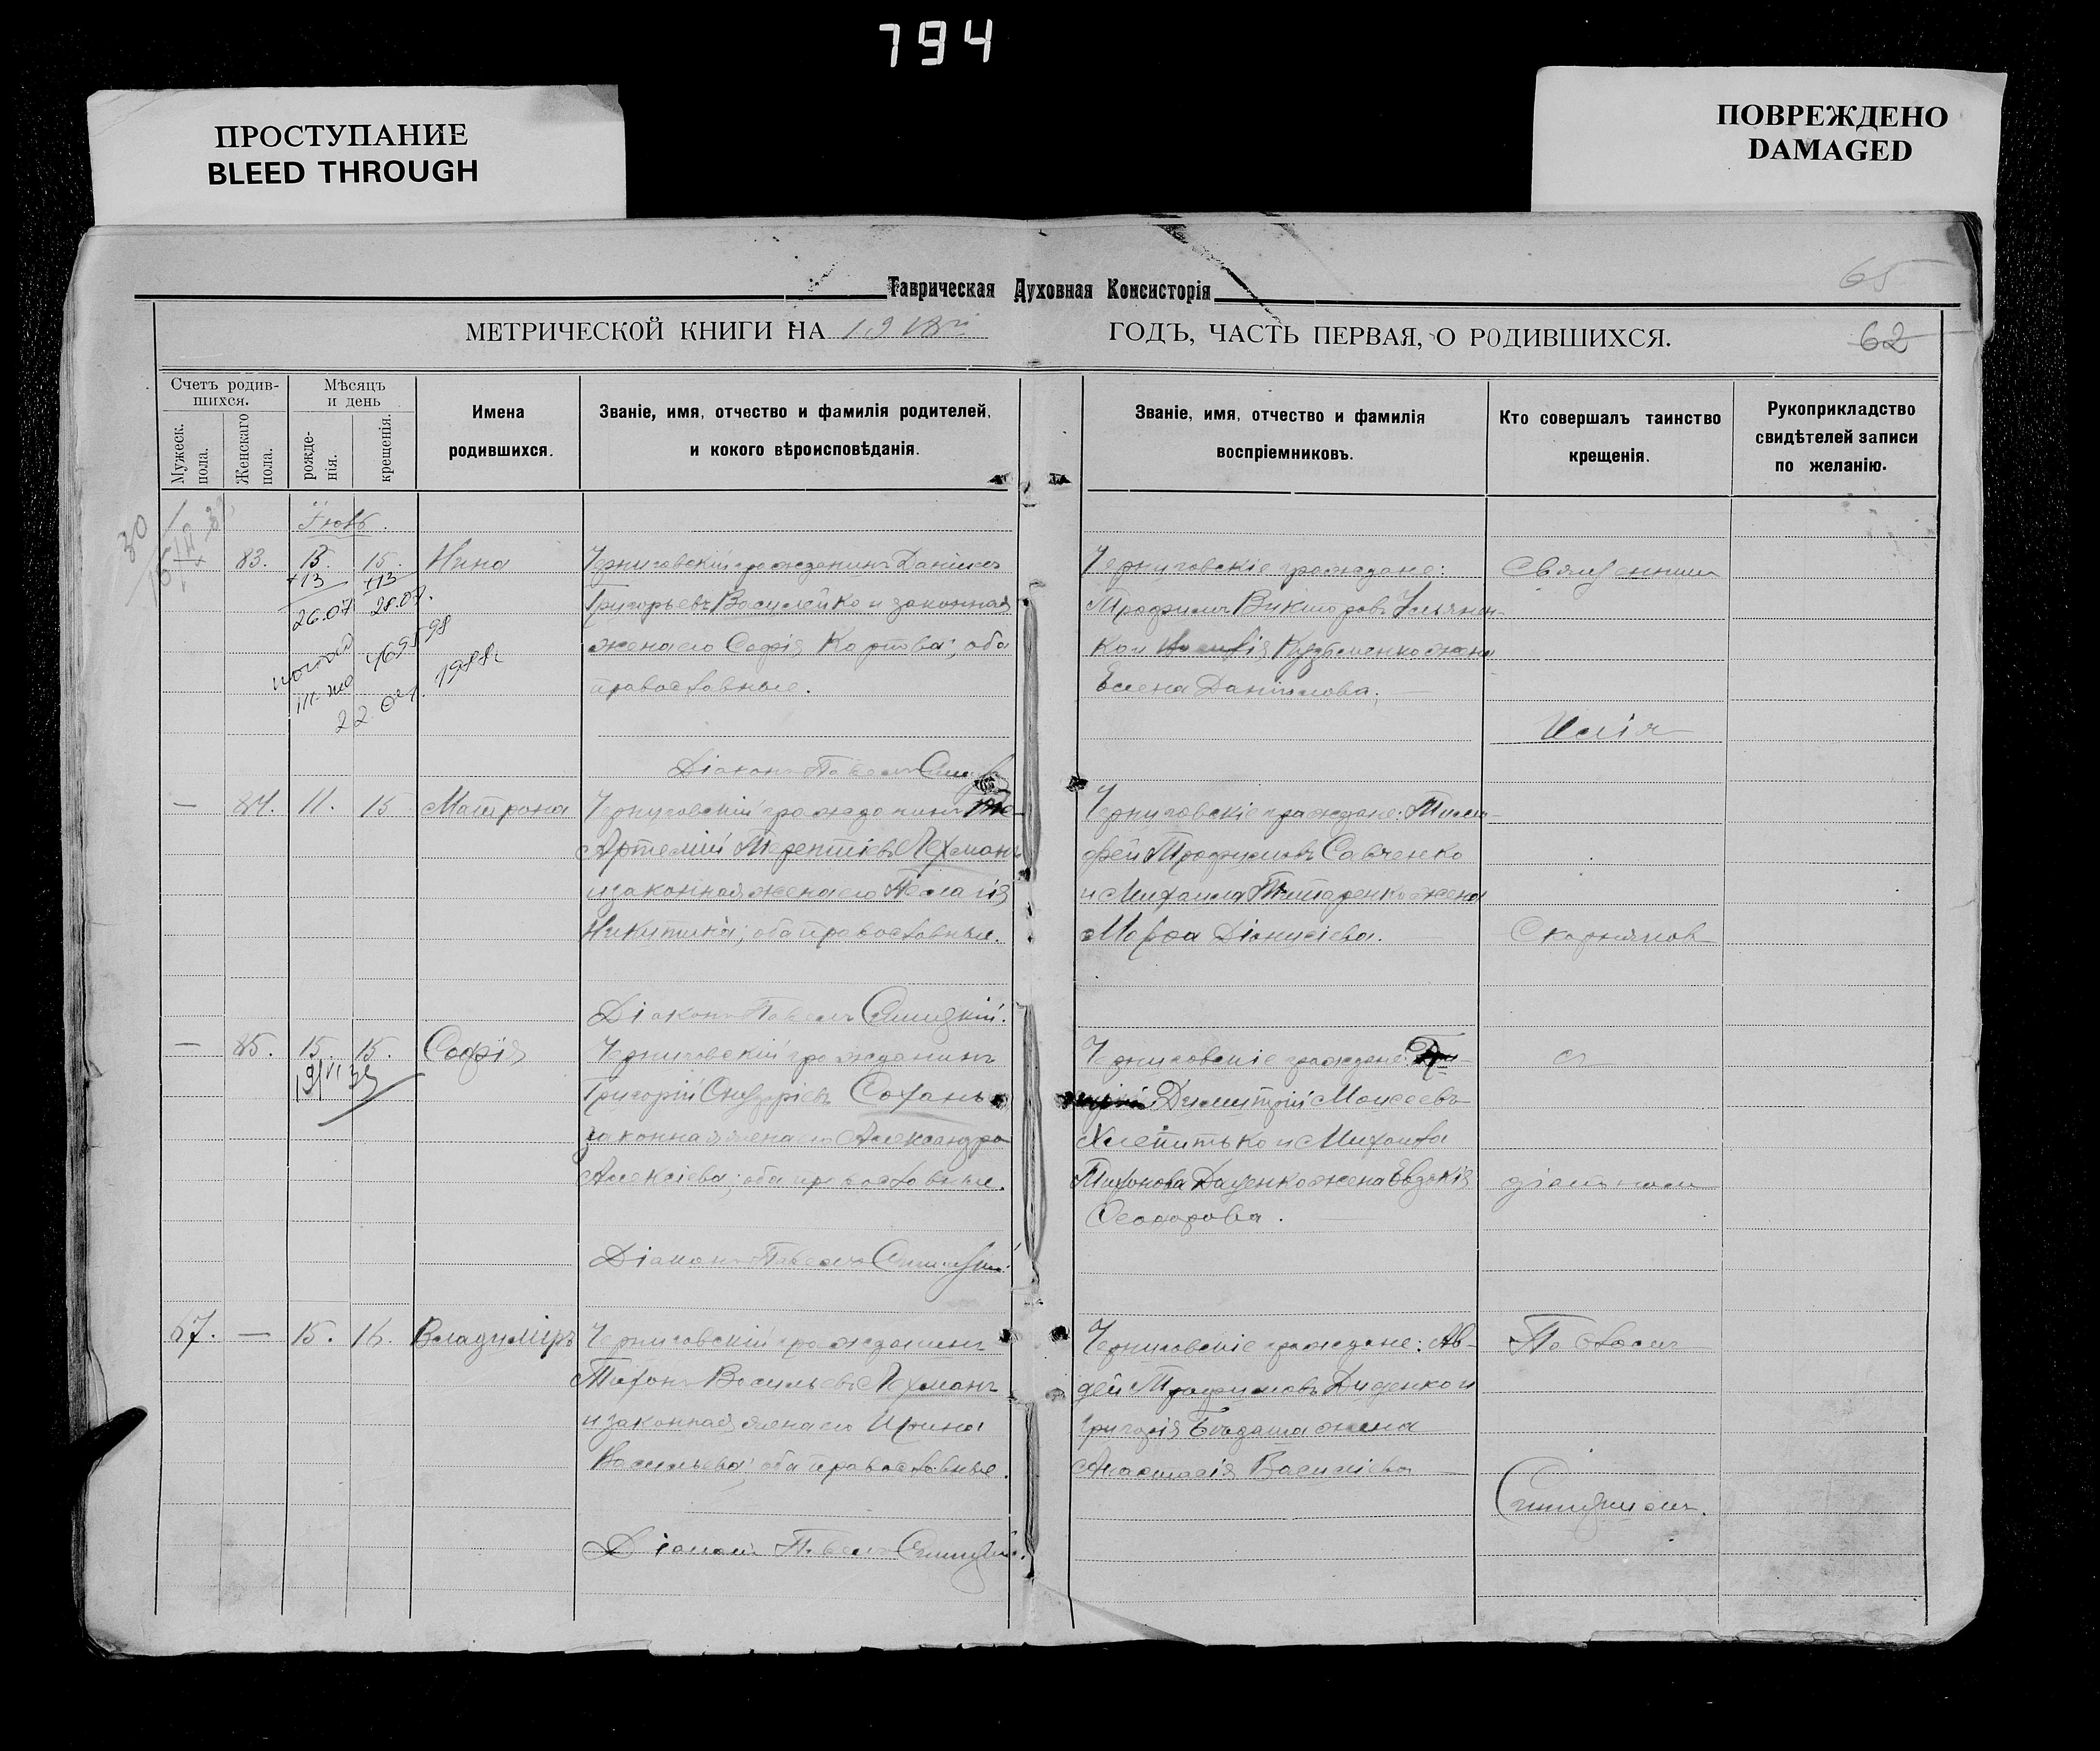 794
ПРОСТУПАНИЕ
BLEED THROUGH
ПОВРЕЖДЕНО
DAMAGED
Таврическая Духовная Консисторія
65
МЕТРИЧЕСКОЙ КНИГИ НА 1918й ГОДЪ, ЧАСТЬ ПЕРВАЯ, О РОДИВШИХСЯ.
62
Счетъ родив-
шихся.
Мужеск.
пола.
Женскаго
пола.
Мѣсяцъ
и день
рожде-
нія.
крещенія.
Имена
родившихся.
Званіе, имя, отчество и фамилія родителей,
и кокого вѣроисповѣданія.
Званіе, имя, отчество и фамилія
воспріемниковъ.
Кто совершалъ таинство
крещенія.
Рукоприкладство
свидѣтелей записи
по желанію.
30
83. 13. 15. Нина
+13 +13
26.07 28.07.
469598
22 1988г
Черниговскій гражданинъ Даніилъ
Григорьевъ Василейко и законная
жена его Софія Карпова; оба
православные.
Діаконъ Павелъ
Черниговскіе граждане:
Трофимъ Викторовъ Ульянен-
ко и Кузьменко жена
Елена Даніилова.
Священникъ
Илія
— 84. 11. 15 Матрона
Черниговскій гражданинъ
Артемій Терентіевъ Лехманъ
и законная жена его Пелагія
Никитина; оба православные.
Діаконъ Павелъ Синицкій.
Черниговскіе граждане: Тимо-
фей Трофимовъ Савченко
и Михаила Титаренко жена
Марфа Діонисіева.
— 85. 15. 15. Софія
Черниговскій гражданинъ
Григорій Сохань
законная жена его Александра
Алексіева; оба православные.
Діаконъ Павелъ Синицкій.
Черниговскіе граждане:
Димитрій Моисеевъ
и Михаила
Даценко жена Евдокія
Феодорова.
съ
діакономъ
67. — 15. 16. Владиміръ
Черниговскій гражданинъ
Тихонъ Васильевъ Лехманъ
и законная жена его Ирина
Васильева; оба православные.
Діаконъ Павелъ Синицкій.
Черниговскіе граждане: Ав-
дей Трофимовъ Диденко и
Григорія жена
Анастасія Василіева
Павломъ
Синицкимъ.